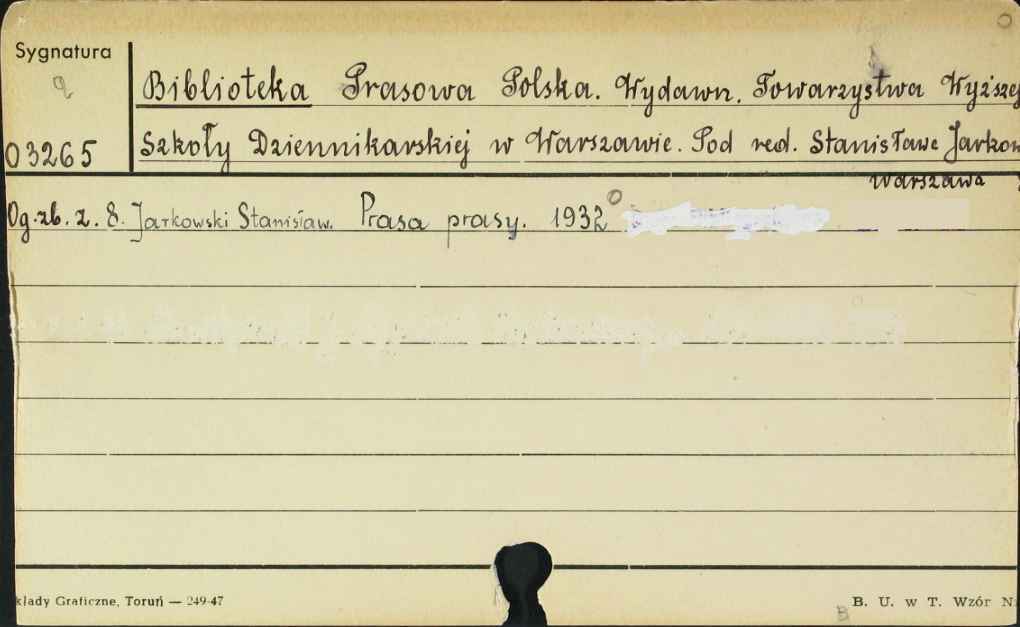 Sygnatura
03265
Biblioteka Prasowa Polska. Wydawn. Towarzystwa Wyższej
Szkoły Dziennikarskiej w Warszawie. Pod red. Stanisława Jarkow
Warszawa
Og. zb. z. 8. Jarkowski Stanisław. Prasa prasy. 1932
kłady Graficzne, Toruń — 249-47
B. U. w T. Wzór N